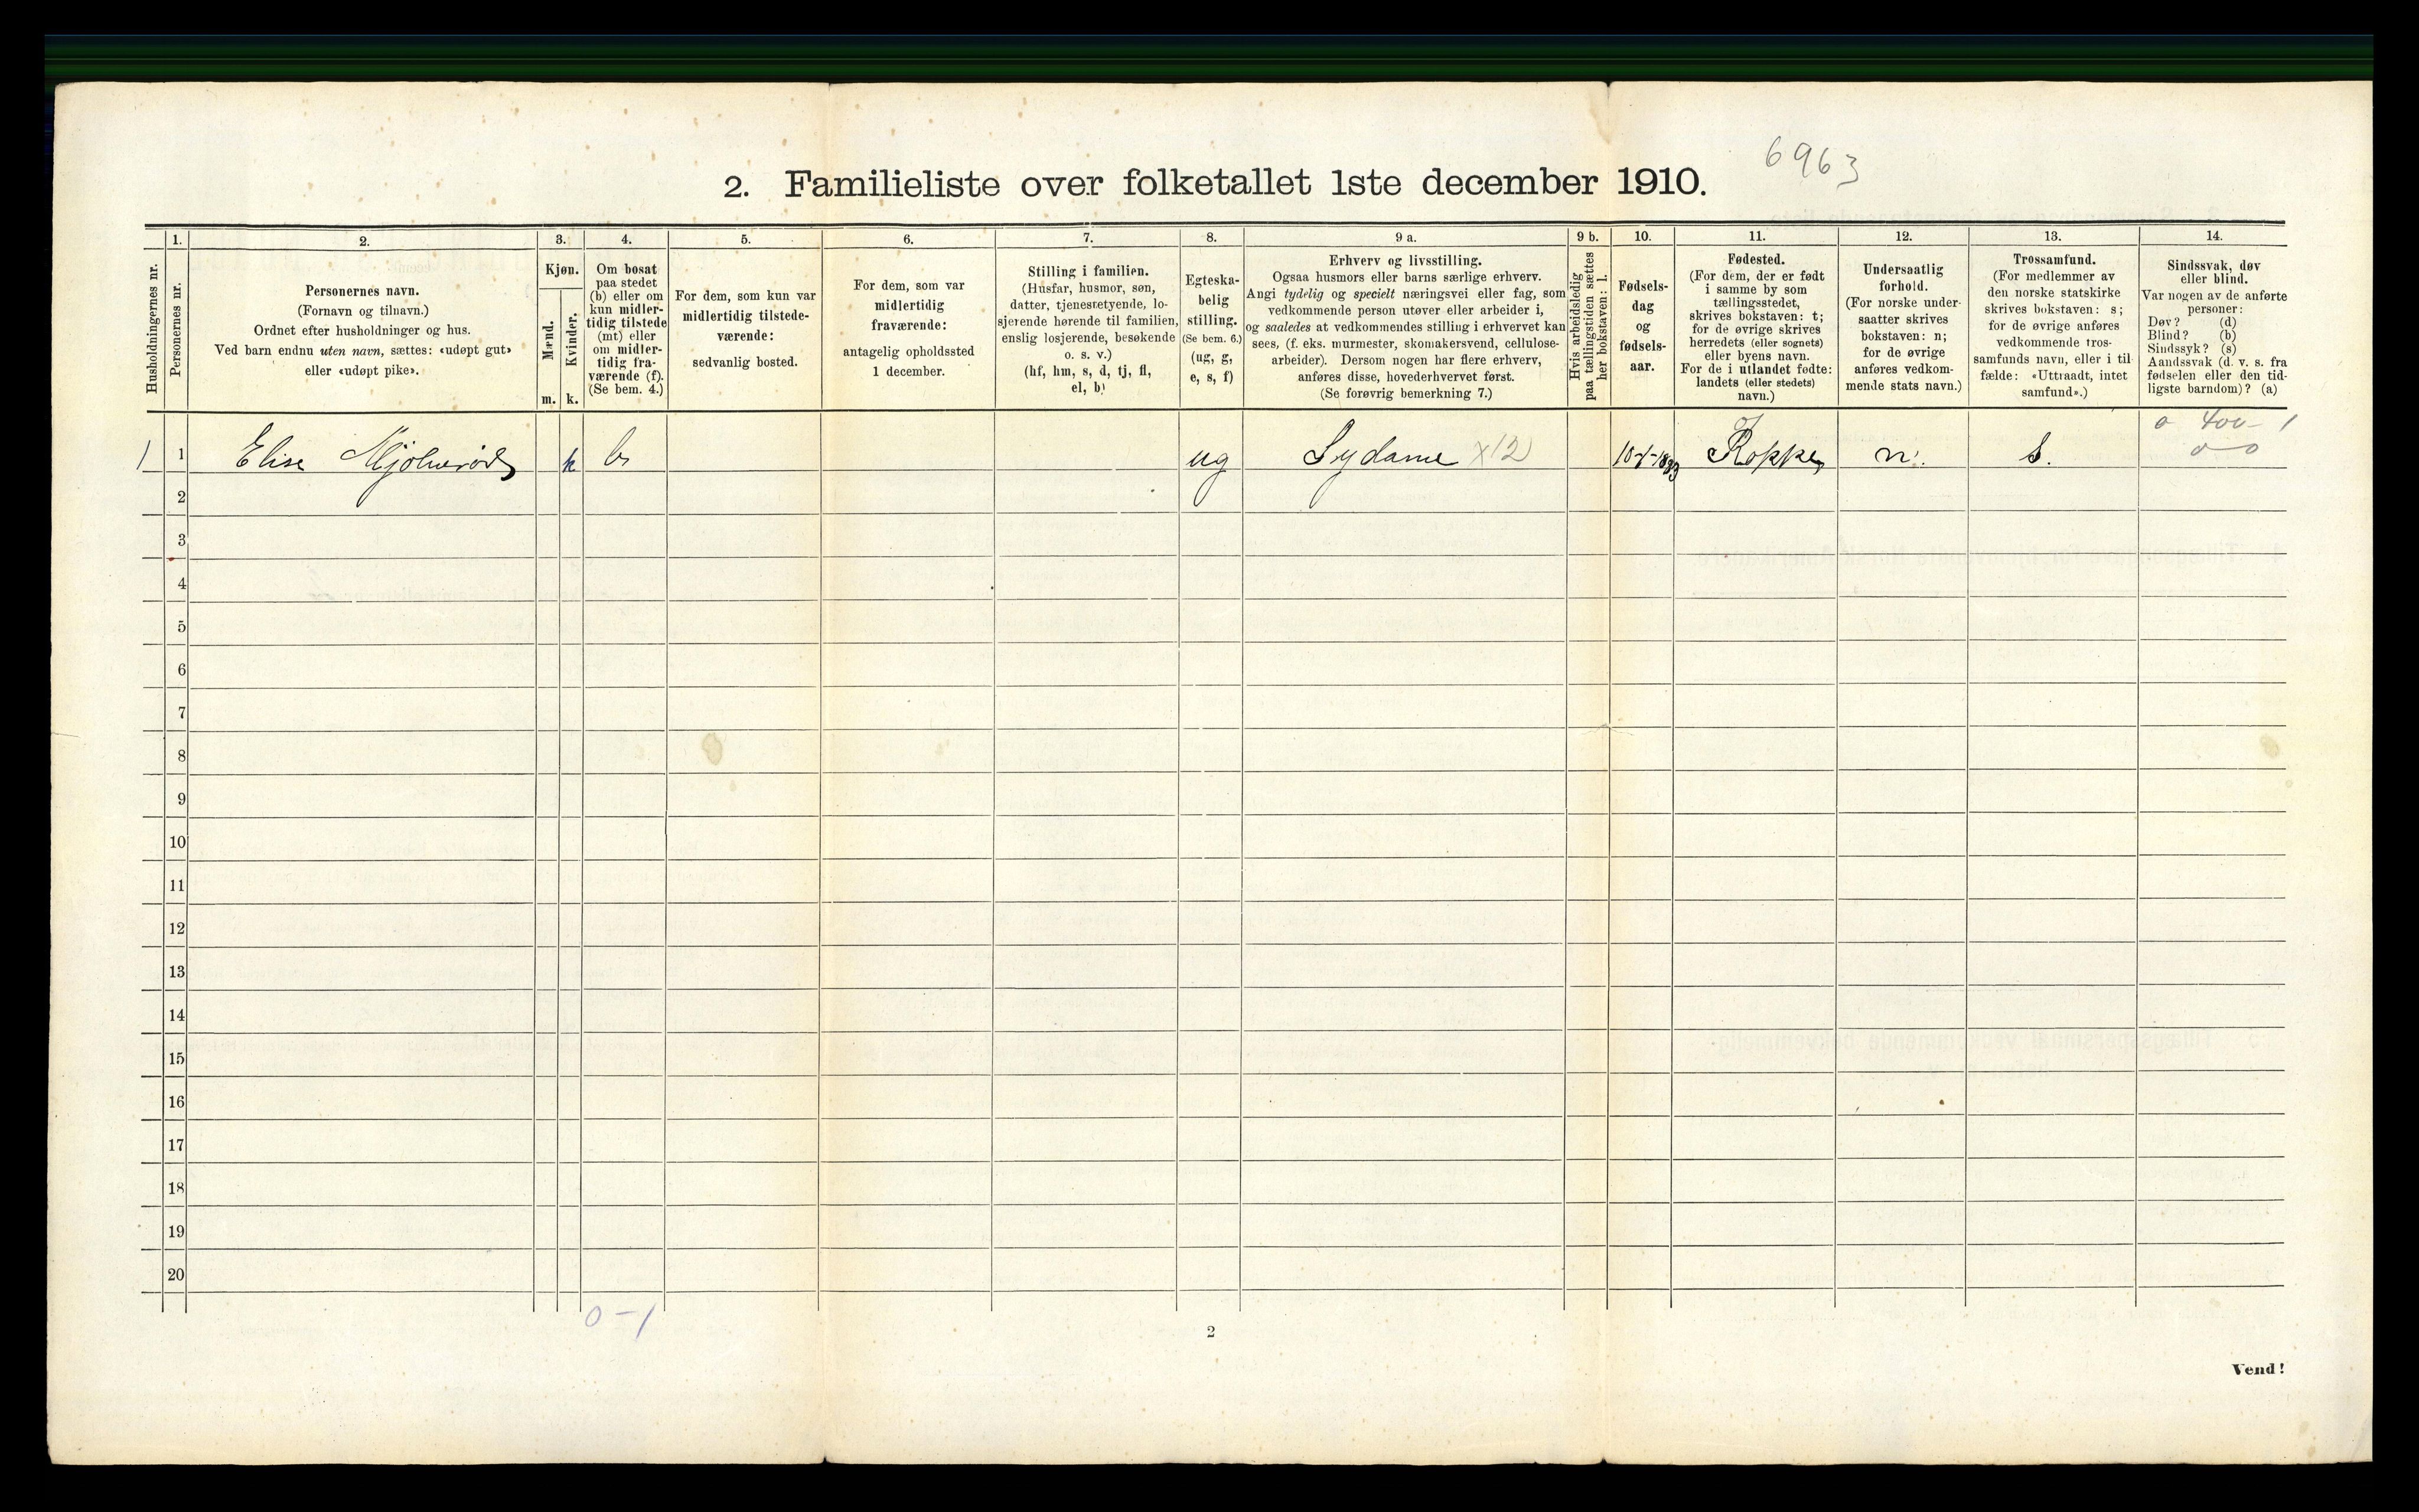 6963
2. Familieliste over folketallet 1ste december 1910.
Husholdningernes nr.
1.
Personernes nr.
2.
Personernes navn.
(Fornavn og tilnavn.)
Ordnet efter husholdninger og hus.
Ved barn endnu uten navn, sættes: «udøpt gut»
eller «udøpt pike».
3.
Kjøn.
Mænd.
Kvinder.
m. k.
4.
Om bosat
paa stedet
(b) eller om
kun midler-
tidig tilstede
(mt) eller
om midler-
tidig fra-
værende (f).
(Se bem. 4.)
5.
For dem, som kun var
midlertidig tilstede-
værende:
sedvanlig bosted.
6.
For dem, som var
midlertidig
fraværende:
antagelig opholdssted
1 december.
7.
Stilling i familien.
(Husfar, husmor, søn,
datter, tjenestetyende, lo-
sjerende hørende til familien,
enslig losjerende, besøkende
o. s. v.)
(hf, hm, s, d, tj, fl,
el, b)
8.
Egteska-
belig
stilling.
(Se bem. 6.)
(ug, g,
e, s, f)
9 a.
Erhverv og livsstilling.
Ogsaa husmors eller barns særlige erhverv.
Angi tydelig og specielt næringsvei eller fag, som
vedkommende person utøver eller arbeider i,
og saaledes at vedkommendes stilling i erhvervet kan
sees, (f. eks. murmester, skomakersvend, cellulose-
arbeider). Dersom nogen har flere erhverv,
anføres disse, hovederhvervet først.
(Se forøvrig bemerkning 7.)
9 b.
Hvis arbeidsledig
paa tællingstiden sættes
her bokstaven: l.
10.
Fødsels-
dag
og
fødsels-
aar.
11.
Fødested.
(For dem, der er født
i samme by som
tællingsstedet,
skrives bokstaven: t;
for de øvrige skrives
herredets (eller sognets)
eller byens navn.
For de i utlandet fødte:
landets (eller stedets)
navn.)
12.
Undersaatlig
forhold.
(For norske under-
saatter skrives
bokstaven: n;
for de øvrige
anføres vedkom-
mende stats navn.)
13.
Trossamfund.
(For medlemmer av
den norske statskirke
skrives bokstaven: s;
for de øvrige anføres
vedkommende tros-
samfunds navn, eller i til-
fælde: «Uttraadt, intet
samfund».)
14.
Sindssvak, døv
eller blind.
Var nogen av de anførte
personer:
Døv? (d)
Blind? (b)
Sindssyk? (s)
Aandssvak (d. v. s. fra
fødselen eller den tid-
ligste barndom)? (a)
0 400 - 1
1 1 Elise Mjølnerød k b ug Sydame x12 Rokke n. s. 0 0
2
3
4
5
6
7
8
9
10
11
12
13
14
15
16
17
18
19
20
0 - 1
2
Vend!